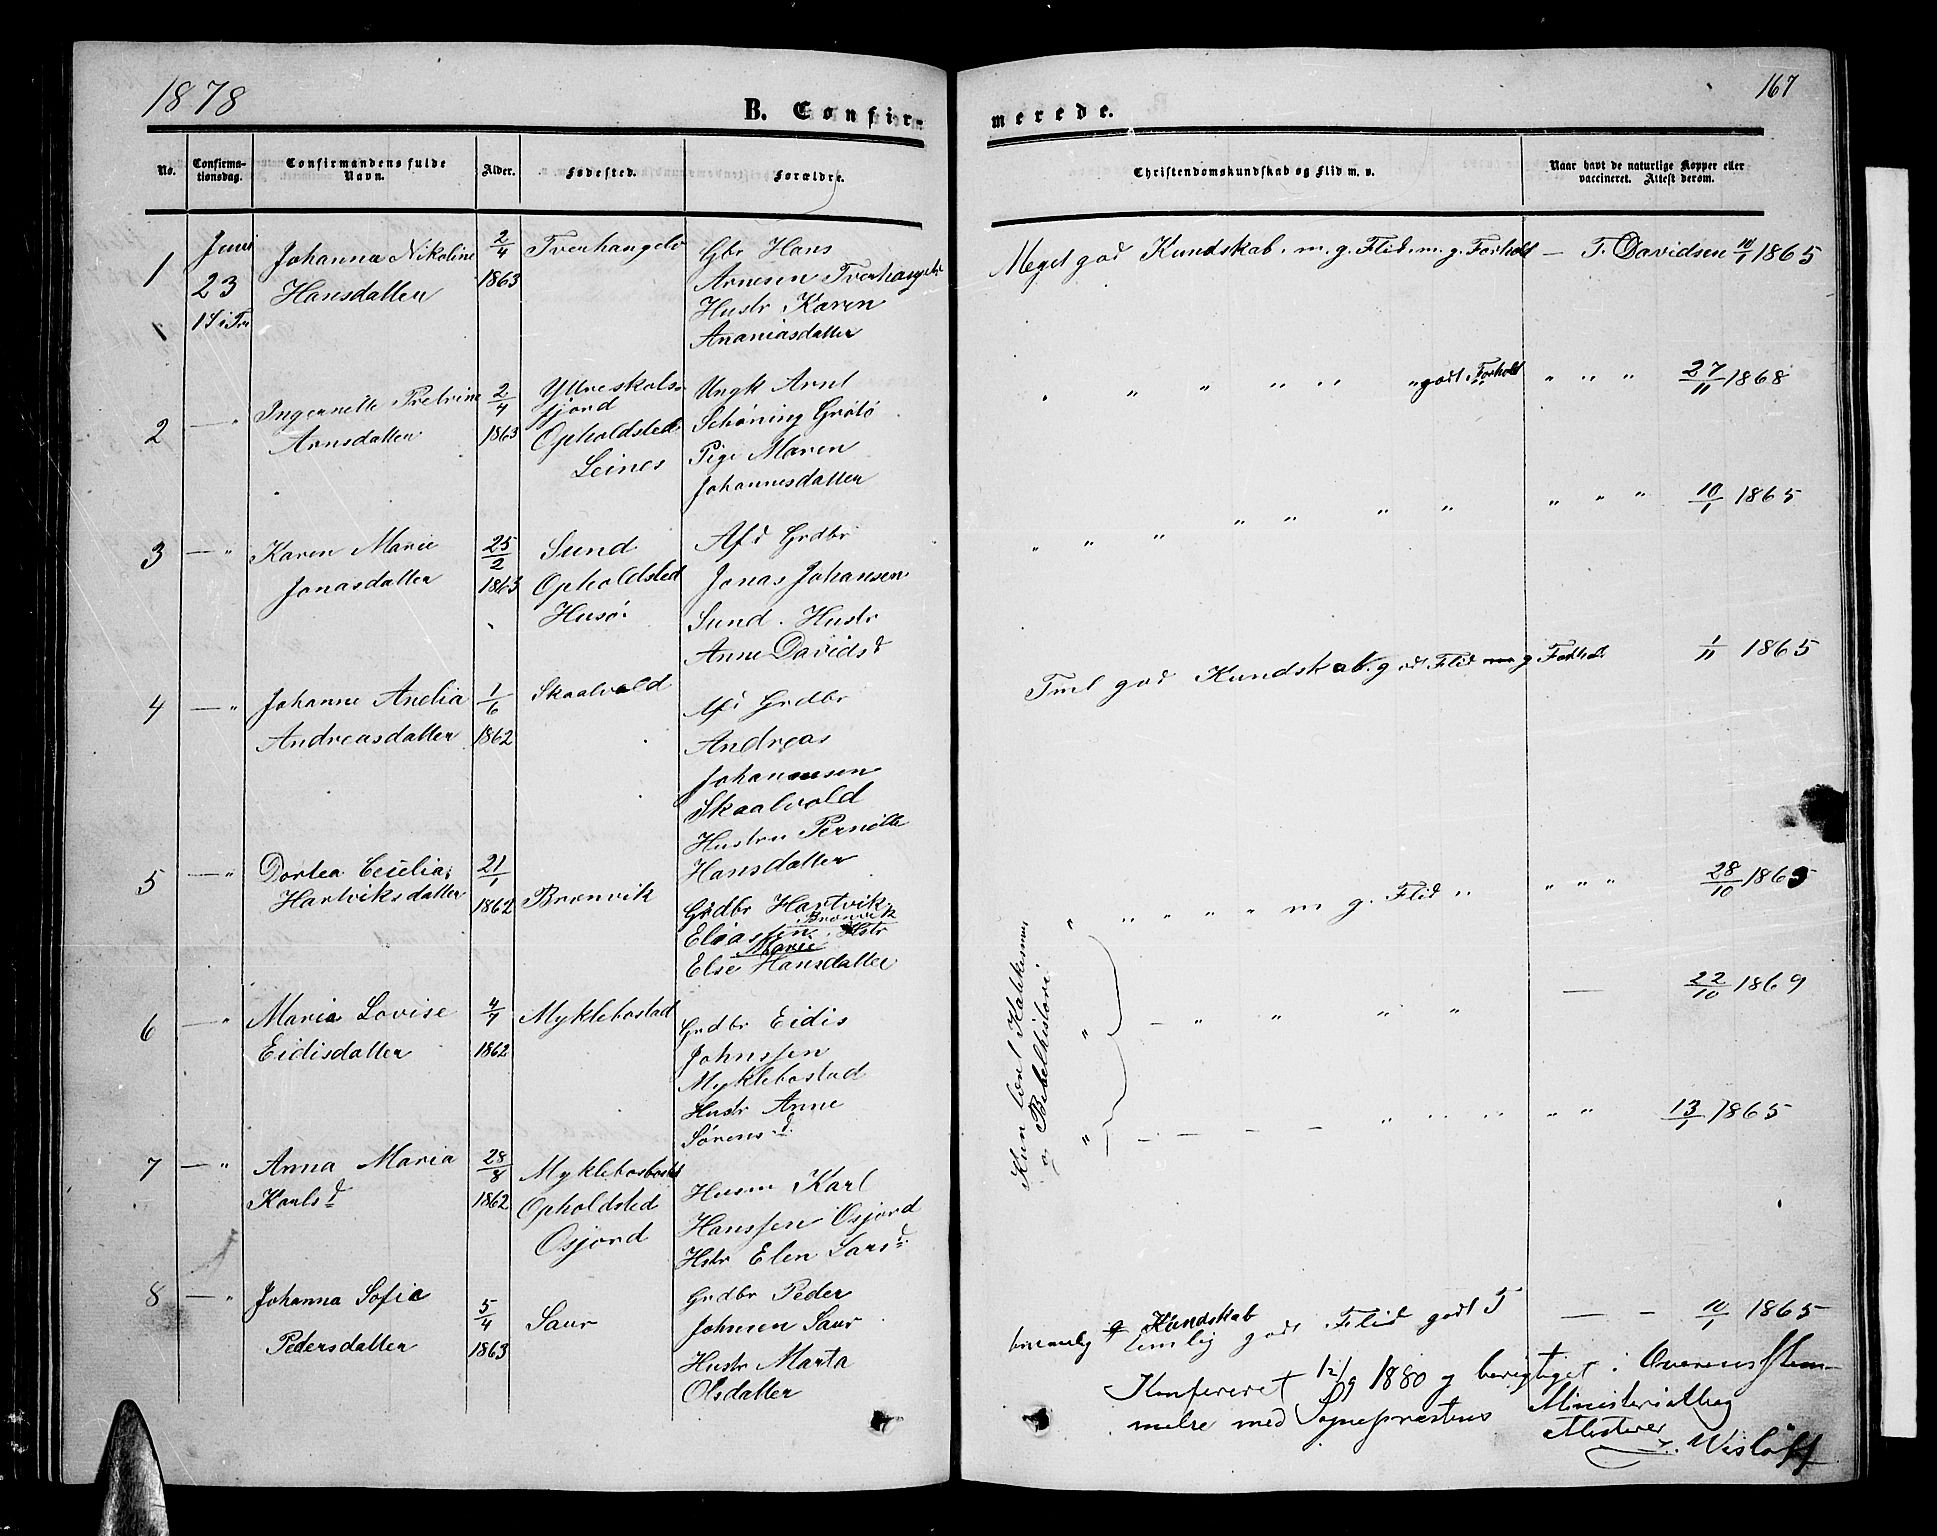 1878
B. Confir-
No.
Confirma-
tionsdag.
Confirmandens fulde
Navn.
Alder.
Fødested.
Forældre.
1
Juni
23
1 S i Tr
Johanna Nikoline
Hansdatter
2/4
1863
Gbr Hans
Arnesen
Hustr Karen
Ananiasdatter
2
— "
Ingernette Petrine
Arnsdatter
2/4
1863
Yttreskols-
fjord
Opholdsted
Leines
Ungk Arnt
Schøning Grøtø
Pige Maren
Johannesdatter
3
— "
Karen Marie
Jonasdatter
25/2
1863
Sund
Opholdsted
Husø
Afd Grdbr
Jonas Johansen
Sund. Hustr
Anne Davidsd
4
— "
Johanne Anelia
Andreasdatter
1/6
1862
Skaalvold
Afd Grdbr
Andreas
Johannesen
Skaalvold
Hustru Pernille
Hansdatter
5
— "
Dortea Cecilia
Hartviksdatter
21/1
1862
Brenvik
Grdbr Hartvik
Brenvik
Eliassen. Hstr
Marie
Else Hansdatter
6
— "
Maria Lovise
Eidisdatter
1862
Myklebostad
Grdbr Eidis
Johnssen
Myklebostad
Hustr Anne
Sørensd
7
— "
Anna Maria
Karlsd
28/8
1862
Myklebostad
Opholdsted
Osjord
Husm Karl
Hanssen Osjord
Hstr Elen Larsd
8
— "
Johanna Sofia
Pedersdatter
5/4
1863
Saur
Grdbr Peder
Johnsen Saur
Hustr Marta
Olsdatter
167
merede.
Christendomskundskab og Flid m. v.
Naar havt de naturlige Kopper eller
vaccineret. Attest derom.
Meget god Kundskab. m. g. Flid. m. g. Forhold — T. Davidsen 10/1 1865
" " " " " " godt Forhold " " " 27/11 1868
" " " " " " " " " " 10/1 1865
Tml god Kundskab. god Flid m g Forhold 1/11 1865
" " " " " m g. Flid " " " " 28/10 1865
Kun lært Katekismus
og Bibelhistorie
" — " " " " — 22/10 1869
" — — — — " " " " " 13/1 1865
Kundskab
temlig godt Flid godt F — — 10/1 1865
Konfereret 12/9 1880 og berigtiget i Overensstem-
melse med Sognepræstens Ministerialbog
Attesterer
Wisløff